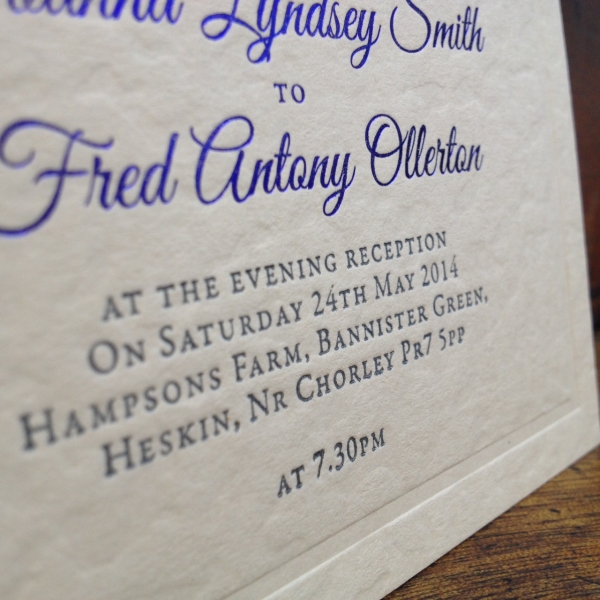 Lyndsey Smith
TO
Fred Antony Ollerton
AT THE EVENING RECEPTION
ON SATURDAY 24TH MAY 2014
HAMPSONS FARM, BANNISTER GREEN,
HESKIN, NR CHORLEY PR7 5PP
AT 7.30PM